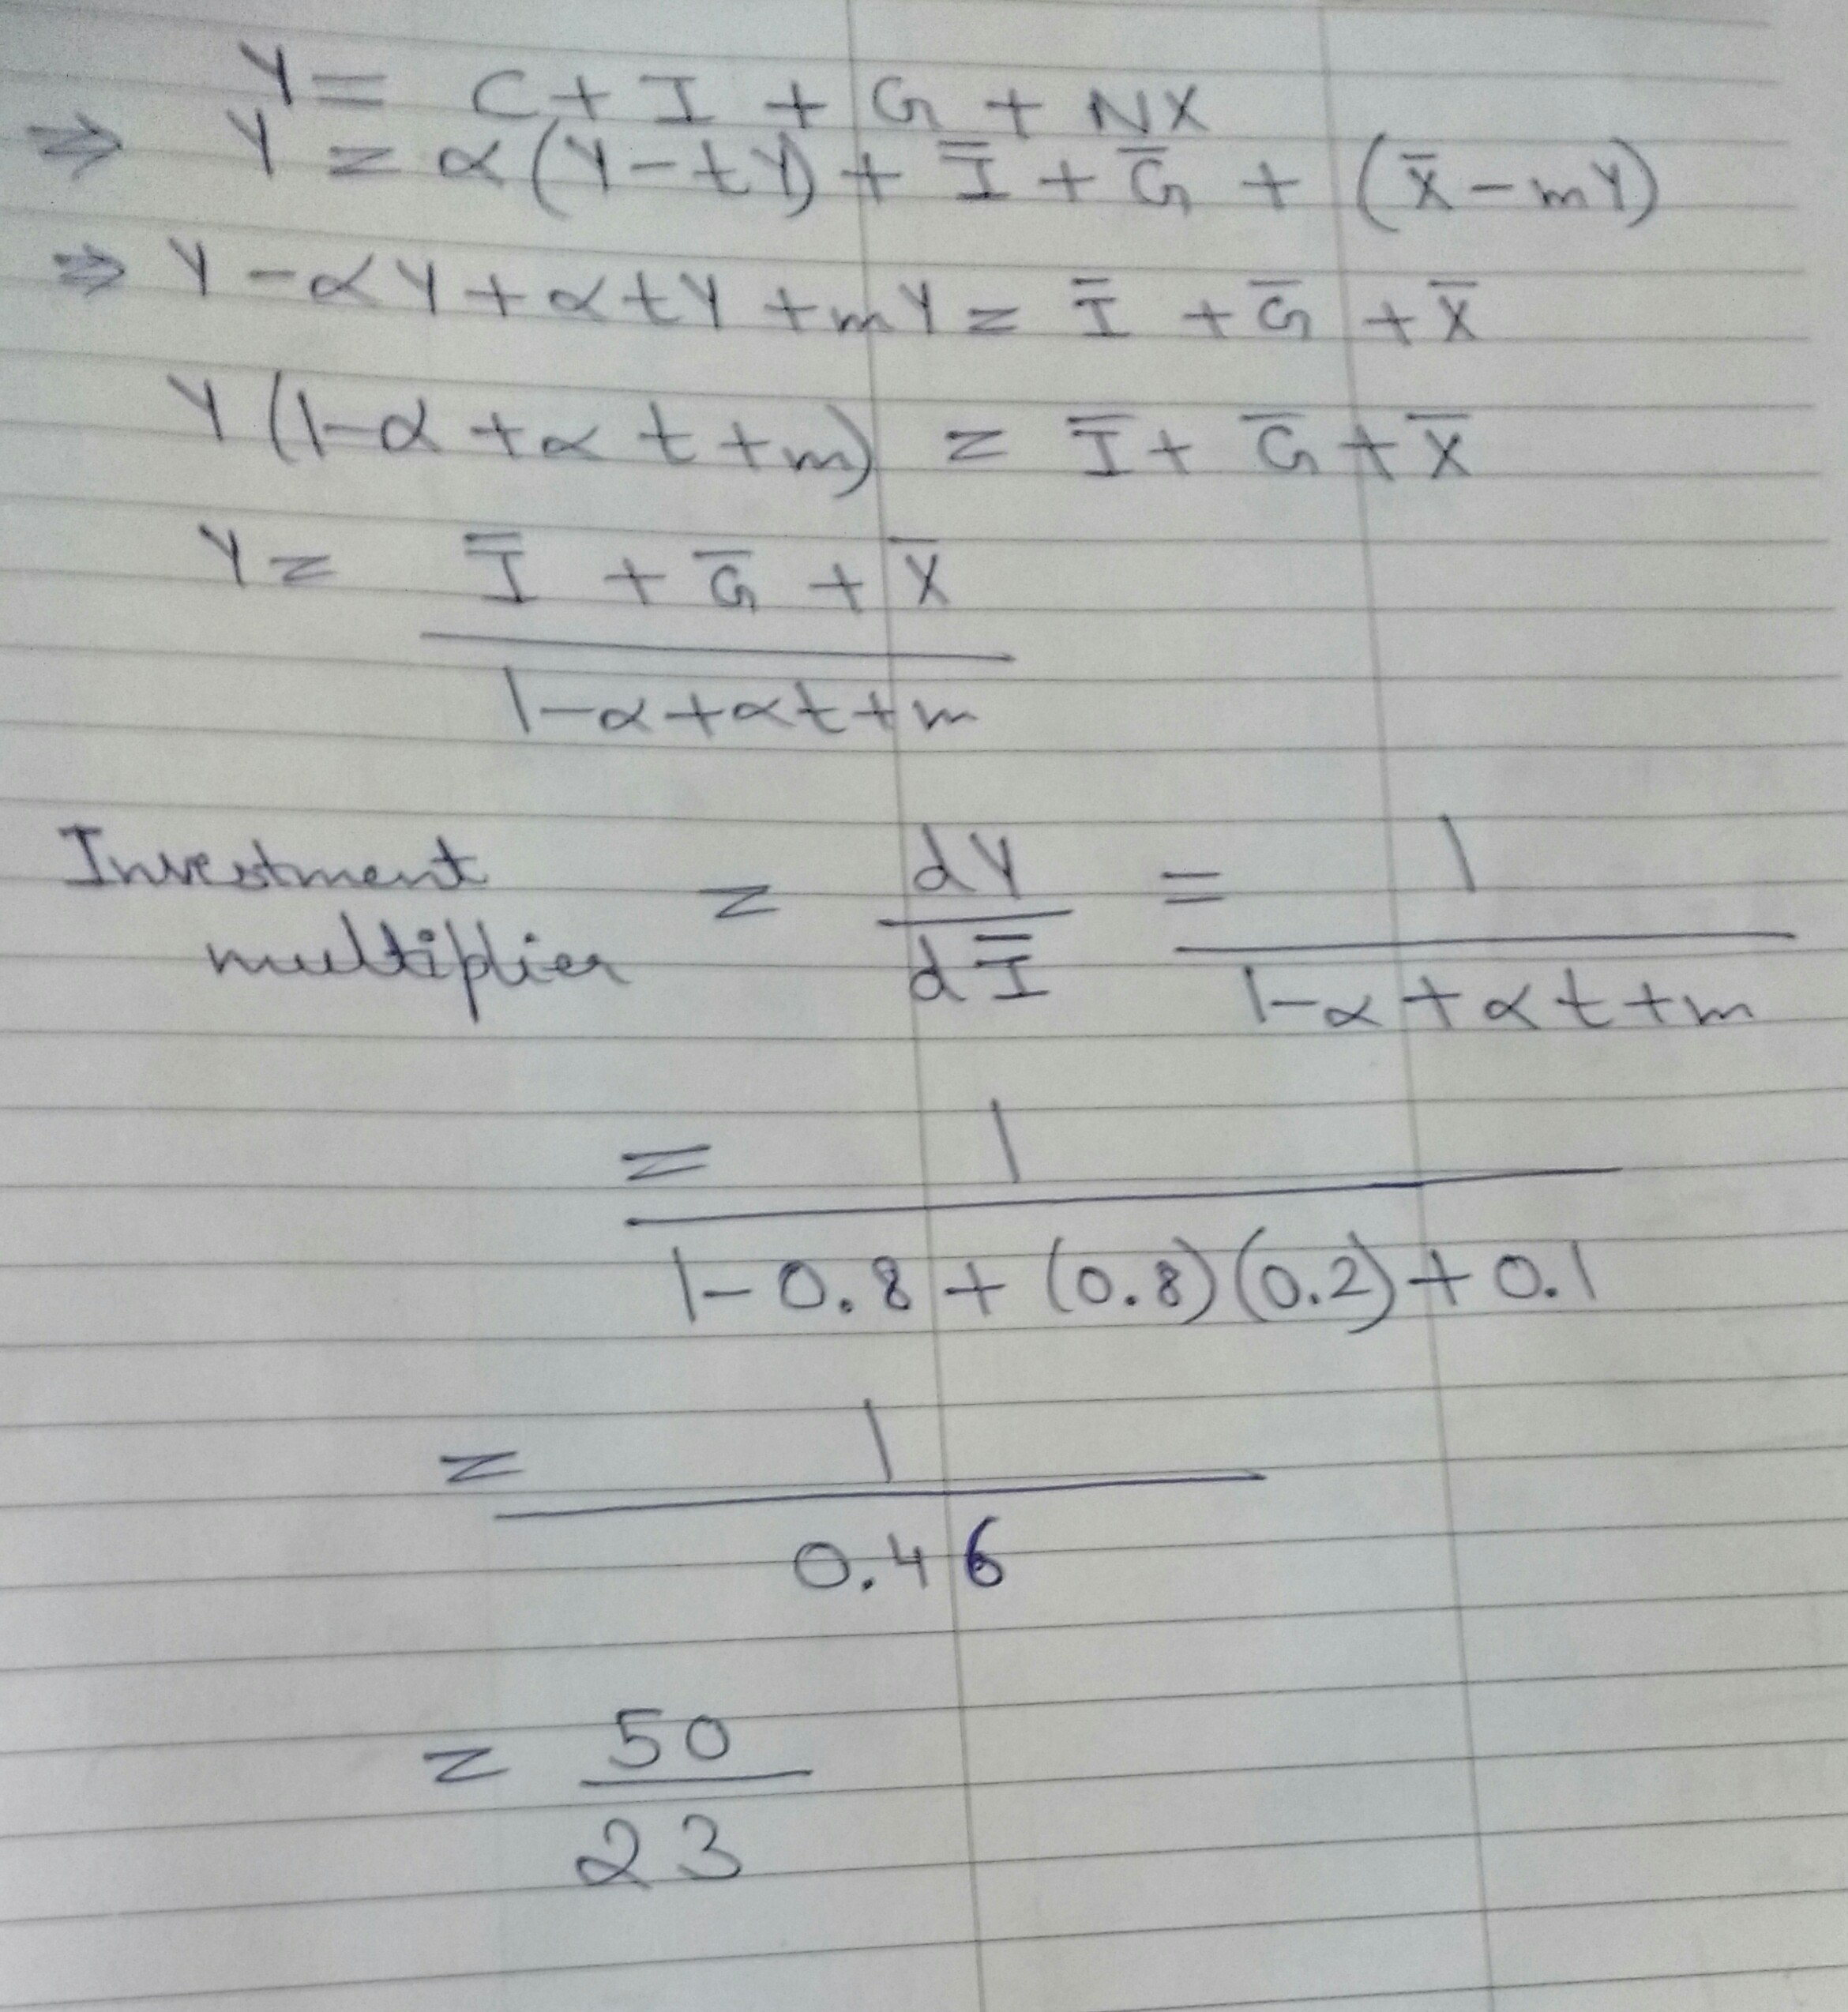 Y = C + I + G + NX
⇒ Y = α(Y-tY) + Ī + Ḡ + (X̄ - mY)
⇒ Y - αY + αtY + mY = Ī + Ḡ + X̄
Y (1-α + α t + m) = Ī + Ḡ + X̄
Y = Ī + Ḡ + X̄
1-α+αt+m
Investment multiplier = dY / dĪ = 1 / 1-α + αt + m
= 1
1 - 0.8 + (0.8)(0.2) + 0.1
= 1
0.46
= 50
23